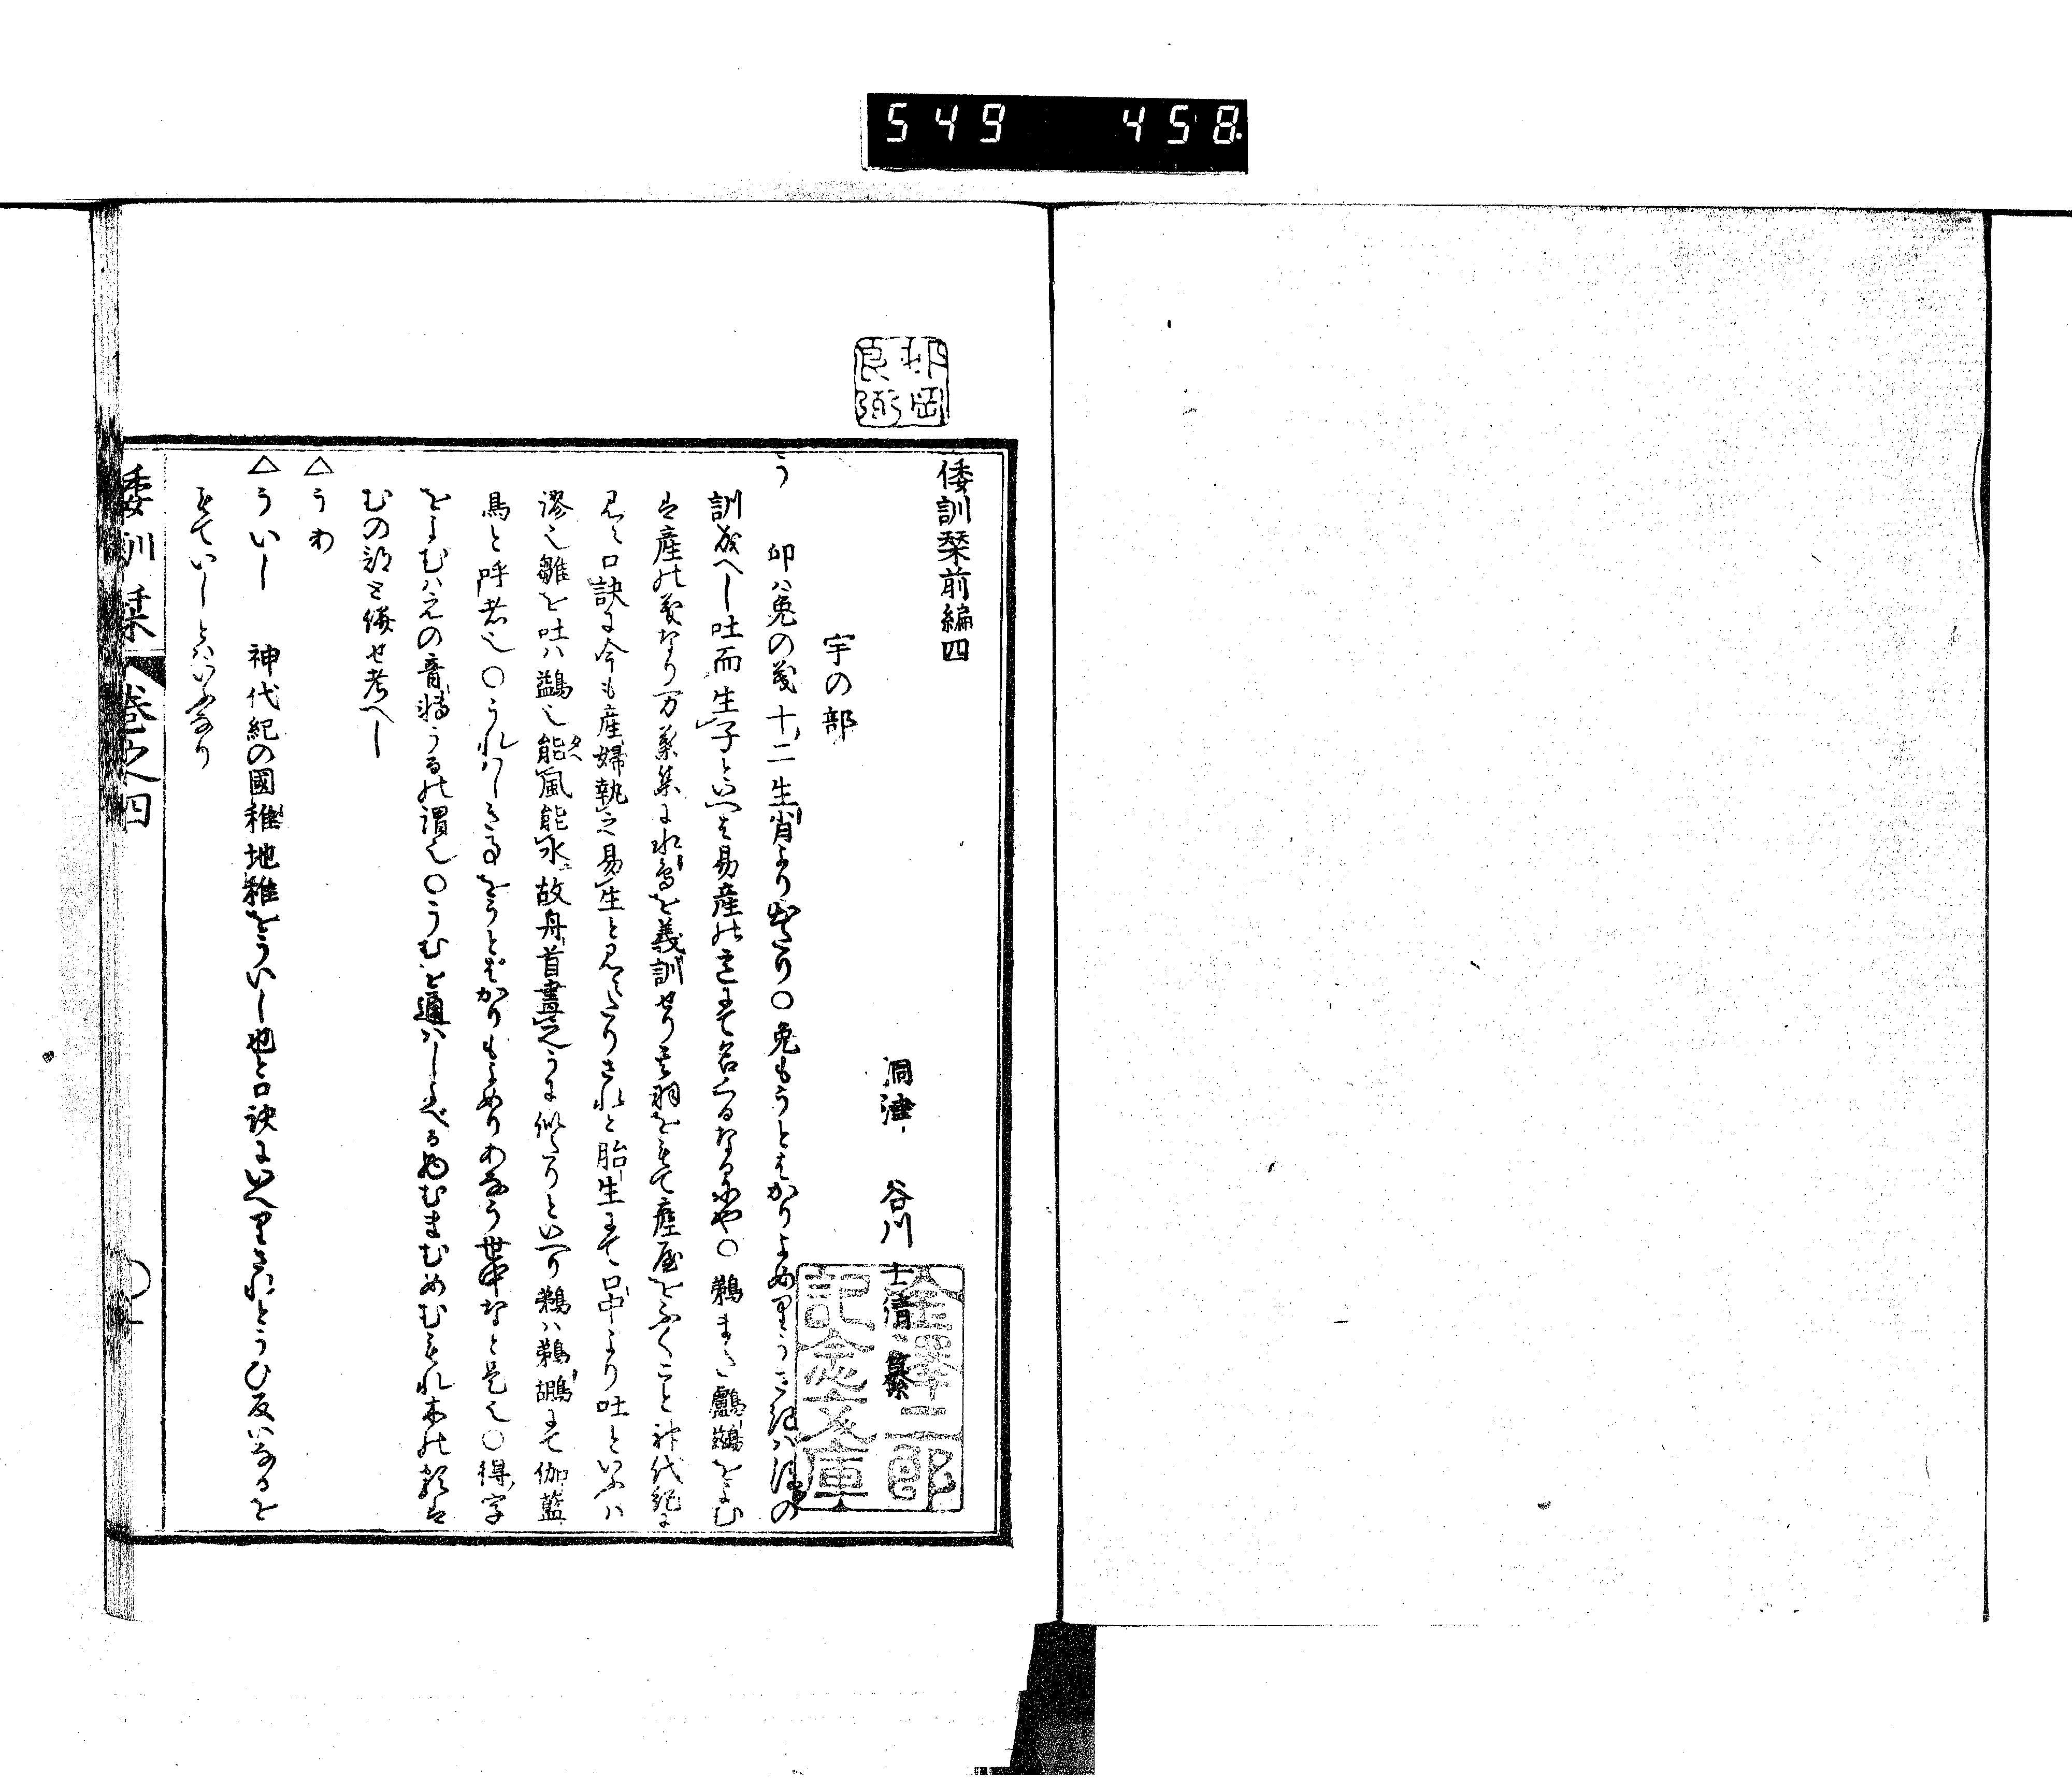 549 458
倭訓栞前編四
洞津 谷川士清 纂
宇の部
う 卯ハ兔の義十二生肖より出たり〇兔もうとはかりよめりうさぎハ後の
訓成へし吐而生子といへは易産の意にて名くるなるにや〇鵜また鸕鷀をよむ
は産の義なり万葉集に水烏を義訓せり其羽をもて産屋をふくこと神代紀に
見ゆ口訣に今も産婦執之易生と見えたりされと胎生にて口中より吐といふハ
謬也雛を吐ハ鷁也能風能水故舟首畫之うに似たりといへり鵜ハ鵜鶘にて伽藍
鳥と呼者也〇うれはしき事をうとばかりもよめりあなう世中なと是也〇得字
をよむハえの音轉うるの謂也〇うむと通ハしよべるはむまむめむもれ木の類は
むの部と併せ考へし
△うわ
△うい〳〵し 神代紀の國稚地稚をうい〳〵し也と口訣にいへりされとうひ反いなるを
もていしとハいふなり
倭訓栞 卷之四
金澤二郎
記念文庫